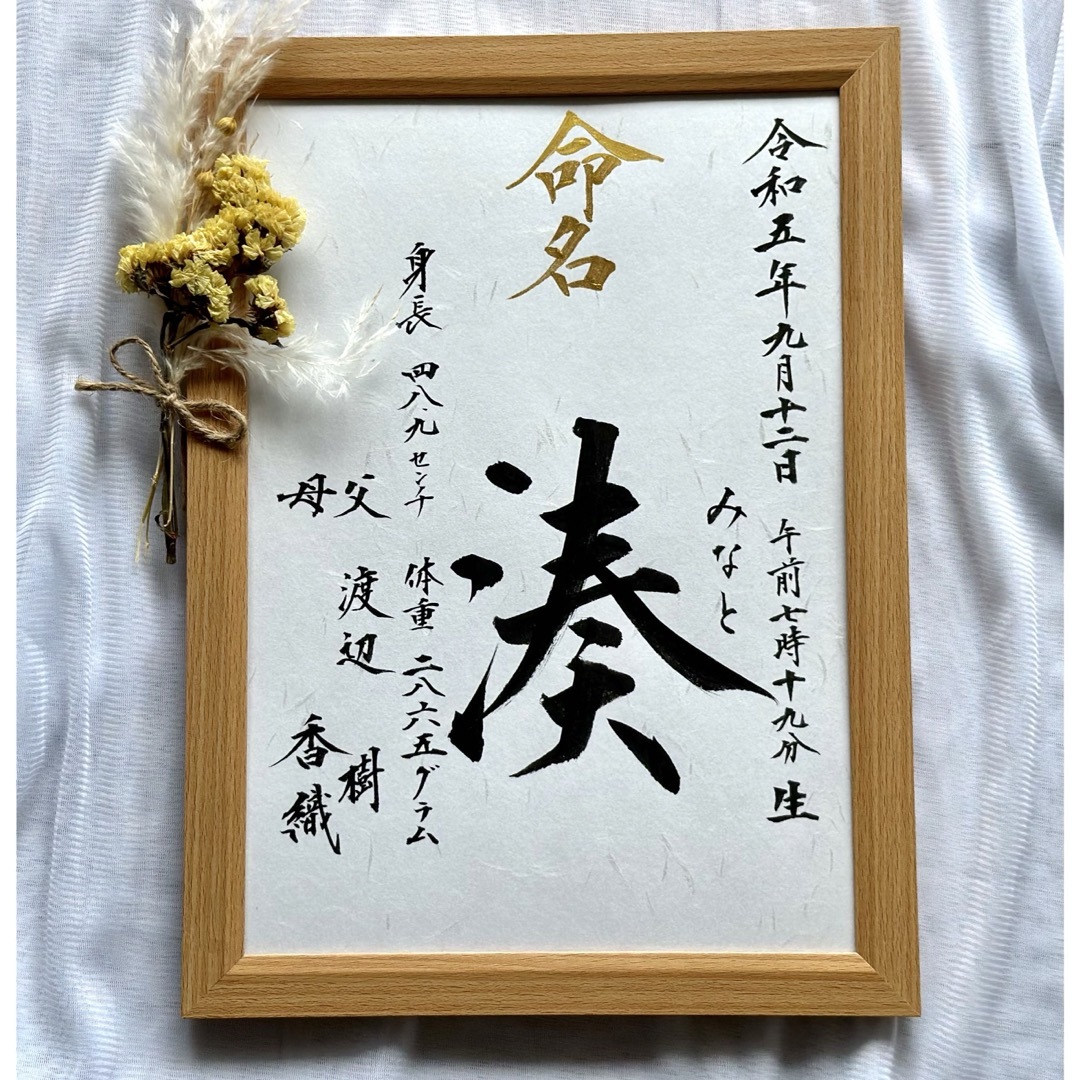 令和五年九月十二日 午前七時十九分 生
みなと
命名
湊
身長 四八.九センチ 体重 二八六五グラム
父 渡辺 樹
母 香織